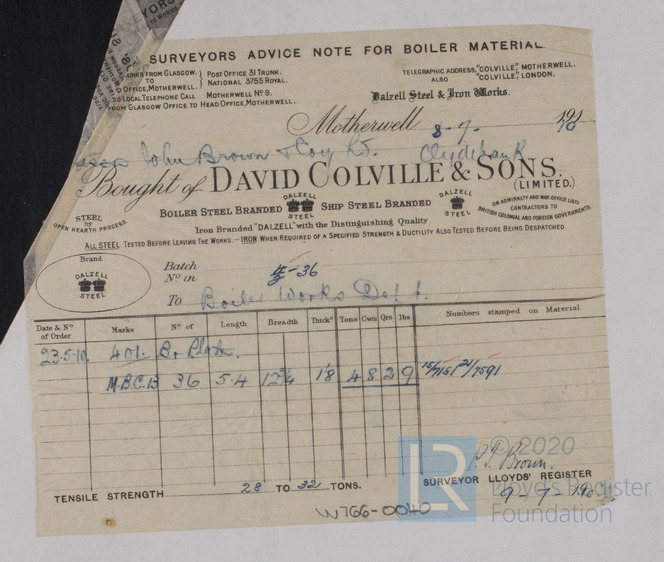 SURVEYORS ADVICE NOTE FOR BOILER MATERIAL.
TRUNKS FROM GLASGOW. TO HEAD OFFICE, MOTHERWELL. } POST OFFICE 31 TRUNK. NATIONAL 3755 ROYAL.
TELEGRAPHIC ADDRESS, "COLVILLE," MOTHERWELL.
ALSO "COLVILLE", LONDON.
LOCAL TELEPHONE CALL MOTHERWELL No 9.
FROM GLASGOW OFFICE TO HEAD OFFICE, MOTHERWELL.
Dalzell Steel & Iron Works.
Motherwell 8-7- 1910
John Brown & Coy Ld. Clydebank
Bought of DAVID COLVILLE & SONS.
(LIMITED.)
STEEL by OPEN HEARTH PROCESS.
BOILER STEEL BRANDED DALZELL STEEL SHIP STEEL BRANDED DALZELL STEEL
ON ADMIRALTY AND WAR OFFICE LISTS
CONTRACTORS TO
BRITISH COLONIAL AND FOREIGN GOVERNMENTS.
Iron Branded "DALZELL" with the Distinguishing Quality
ALL STEEL TESTED BEFORE LEAVING THE WORKS.—IRON WHEN REQUIRED OF A SPECIFIED STRENGTH & DUCTILITY ALSO TESTED BEFORE BEING DESPATCHED
Brand
DALZELL
STEEL
Batch
No in 36
To Boiler Works Dept.
Date & No of Order Marks No of Length Breadth Thicks Tons Cwts Qrs lbs Numbers stamped on Material
23.5.10 401. Br Plate.
M.B.C.B 36 5.4 1'8 4 8 2 9
TENSILE STRENGTH 28 TO 32 TONS.
Brown.
SURVEYOR LLOYDS' REGISTER
9-7-10
W766-0040
LR
© 2020
Lloyd's Register
Foundation